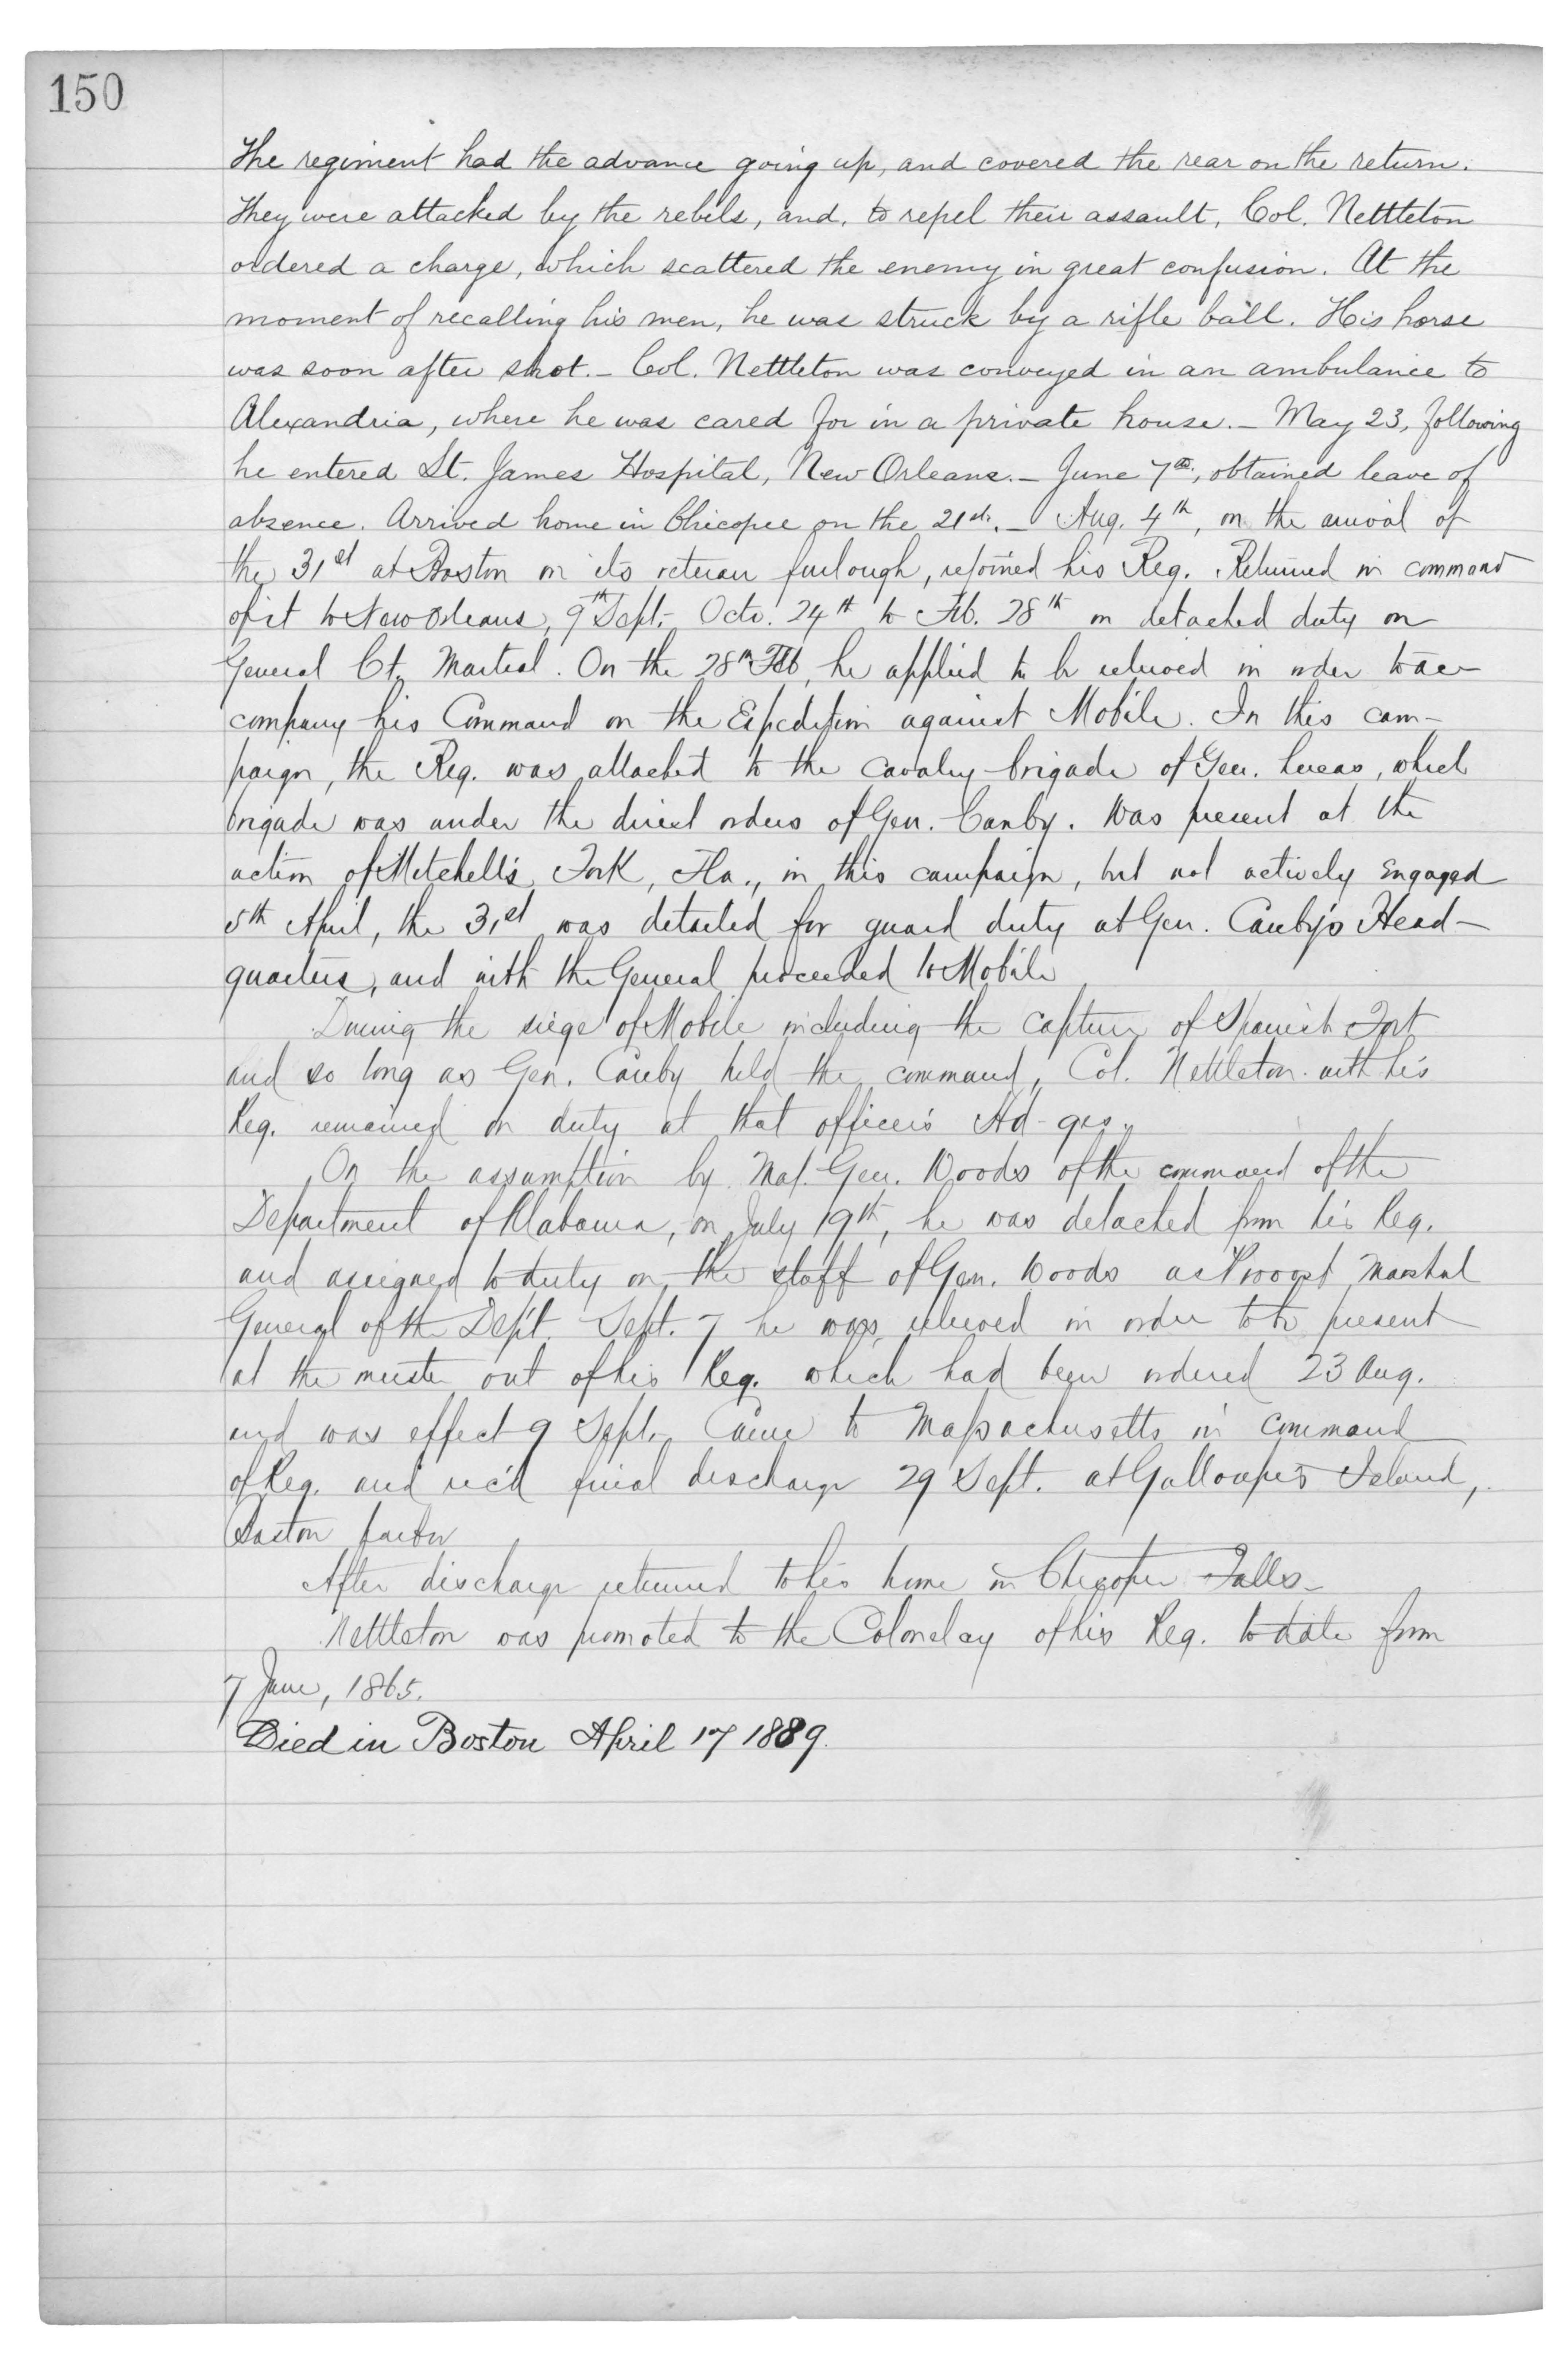 150
The regiment had the advance going up, and covered the rear on the return.
They were attacked by the rebels, and, to repel their assault, Col. Nettleton
ordered a charge, which scattered the enemy in great confusion. At the
moment of recalling his men, he was struck by a rifle ball. His horse
was soon after shot. – Col. Nettleton was conveyed in an ambulance to
Alexandria, where he was cared for in a private house. – May 23, following
he entered St. James Hospital, New Orleans. – June 7th, obtained leave of
absence. Arrived home in Chicopee on the 21st. – Aug. 4th, on the arrival of
the 31st at Boston on its veteran furlough, rejoined his Reg. Returned in command
of it to New Orleans, 9th Sept. Octo. 24th to Feb. 28th on detached duty on
General Ct. Martial. On the 28th Feb, he applied to be relieved in order to ac-
company his Command on the Expedition against Mobile. In this cam-
paign, the Reg. was attached to the cavalry brigade of Gen. Lucas, which
brigade was under the direct orders of Gen. Canby. Was present at the
action of Mitchell's Fork, Fla., in this campaign, but not actively engaged
5th April, the 31st was detailed for guard duty at Gen. Canby's Head-
quarters, and with the General proceeded to Mobile
During the siege of Mobile including the capture of Spanish Fort
and so long as Gen. Canby held the command, Col. Nettleton with his
Reg. remained on duty at that officer's Hd-qrs.
On the assumption by Maj. Gen. Woods of the command of the
Department of Alabama, on July 19th, he was detached from his Reg.
and assigned to duty on the staff of Gen. Woods as Provost Marshal
General of the Dep't. Sept. 7 he was relieved in order to be present
at the muster out of his Reg. which had been ordered 23 Aug.
and was effect 9 Sept. Came to Massachusetts in command
of Reg. and rec'd final discharge 29 Sept. at Galloupe's Island,
Boston harbor
After discharge returned to his home in Chicopee Falls –
Nettleton was promoted to the Colonelcy of his Reg. to date from
7 June, 1865.
Died in Boston April 17 1889.